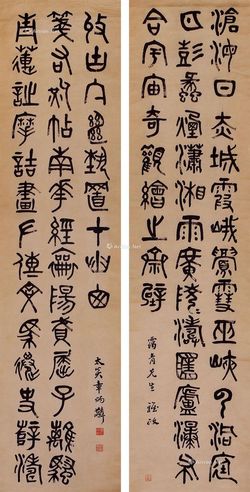 滄海日赤城霞峨嵋雪巫峽雲洞庭
月彭蠡煙瀟湘雨廣陵濤匡廬瀑布
合宇宙奇觀繪吾齋壁
藹青先生雅政
青蓮詩摩詰畫左傳文馬遷史薛濤
箋右軍帖南華經賦屈子離騷
收古今絕藝置我山窗
太炎章炳麟